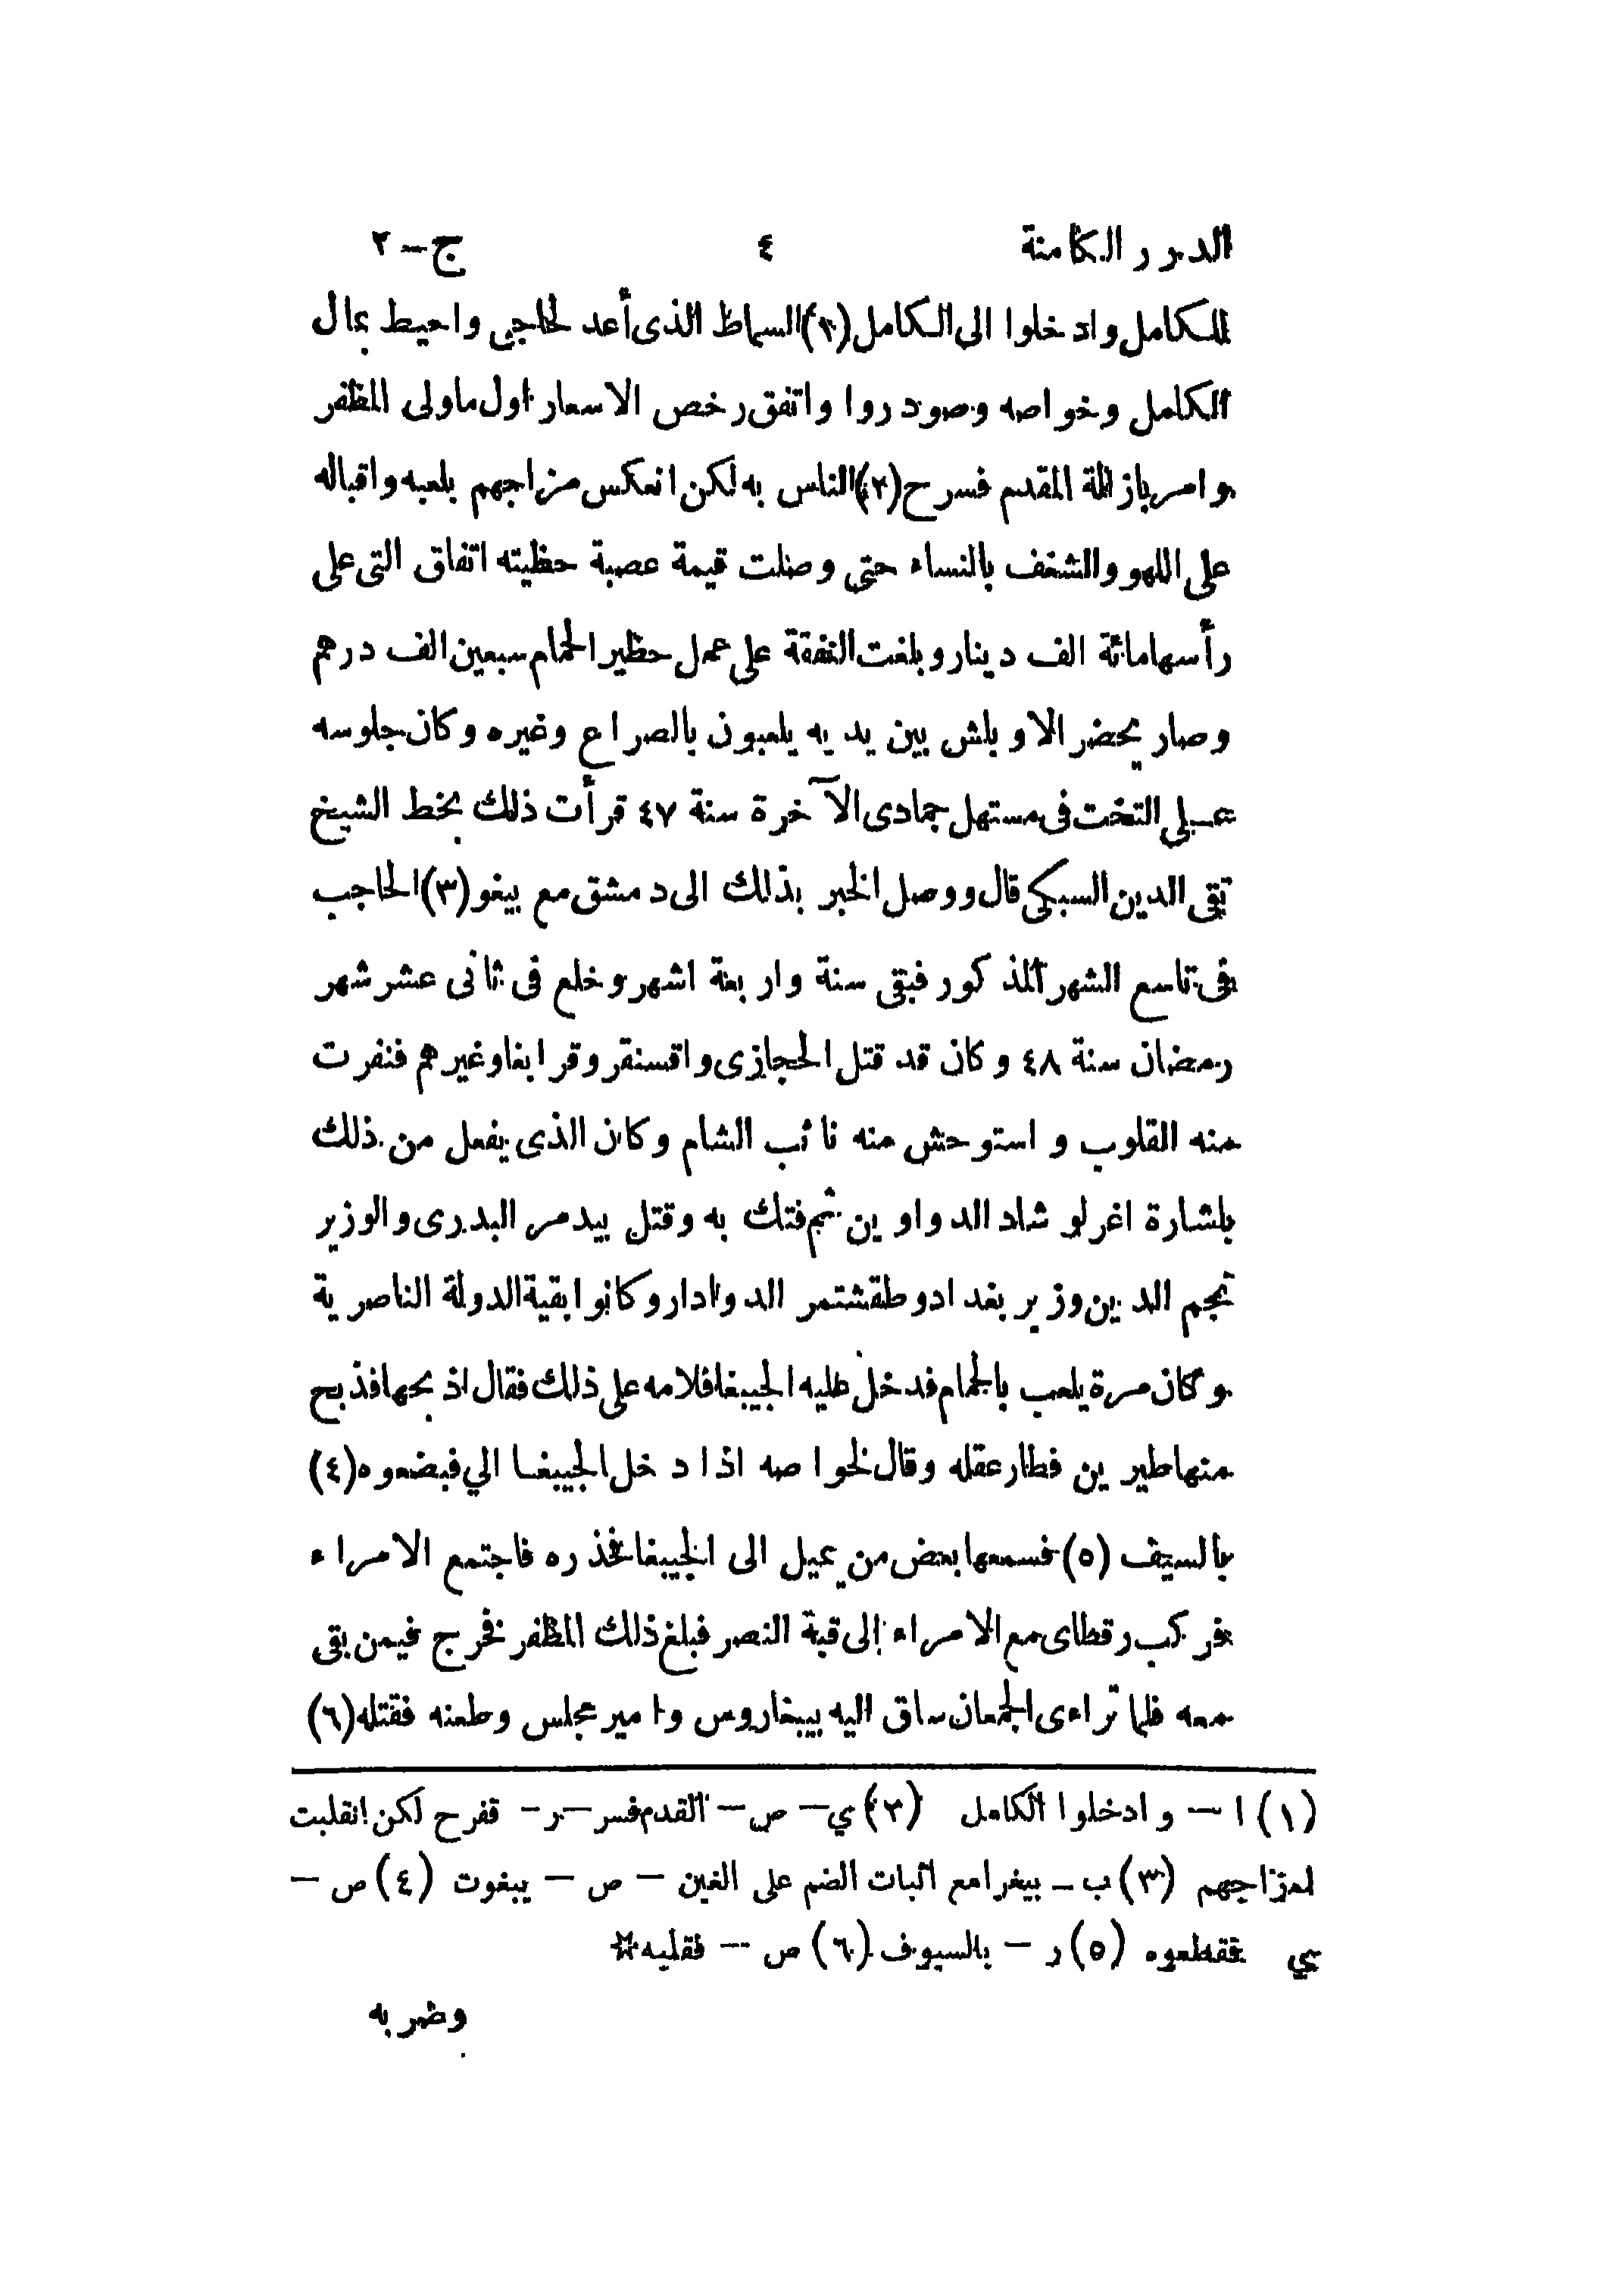 الدرر الكامنة ٤ ج–٢
للكامل وادخلوا الى الكامل (١) السماط الذى أعد لحاجى واحيط بمال
الكامل وخواصه وصودروا واتفق رخص الاسعار اول ماولى المظفر
وامر بازالة المقدم فسرح (٢) الناس به لكن انعكس مزاجهم بلعبه واقباله
على اللهو والشغف بالنساء حتى وصلت قيمة عصبة حظيته اتفاق التى على
رأسها مائة الف دينار وبلغت النفقة على عمل حظير الحمام سبعين الف درهم
وصار يحضر الاوباش بين يديه يلعبون بالصراع وغيره وكان جلوسه
على التخت فى مستهل جمادى الآخرة سنة ٤٧ قرأت ذلك بخط الشيخ
تقى الدين السبكى قال ووصل الخبر بذلك الى دمشق مع بيغو (٣) الحاجب
فى تاسع الشهر المذكور فبقى سنة واربعة اشهر وخلع فى ثانى عشر شهر
رمضان سنة ٤٨ وكان قد قتل الحجازى واقسنقر وقرابغا وغيرهم فنفرت
منه القلوب واستوحش منه نائب الشام وكان الذى يفعل من ذلك
باشارة اغرلو شاد الدواوين ثم فتك به وقتل بيدمر البدرى والوزير
نجم الدين وزير بغداد وطقشتمر الدوادار وكانوا بقية الدولة الناصرية
وكان مرة يلعب بالحمام فدخل عليه الجيبغا فلامه على ذلك فقال اذبحها فذبح
منها طيرين فطار عقله وقال لخواصه اذا دخل الجيبغا الي فبضعوه (٤)
بالسيف (٥) فسمعها بعض من يميل الى الجيبغا فحذره فاجتمع الامراء
فركب رقطاى مع الامراء إلى قبة النصر فبلغ ذلك المظفر فخرج فيمن بقى
معه فلما تراءى الجمعان ساق اليه بيبغاروس وامير مجلس وطعنه فقتله (٦)
(١) ا – وادخلوا الكامل (٢) ي – ص – القدم فسر – ر – ففرح لكن انقلبت
امزاجهم (٣) ب – بيغرا مع اثبات الضم على الغين – ص – يبغوت (٤) ص –
ي فقطعوه (٥) ر – بالسيوف (٦) ص – فقلبه *
وضربه